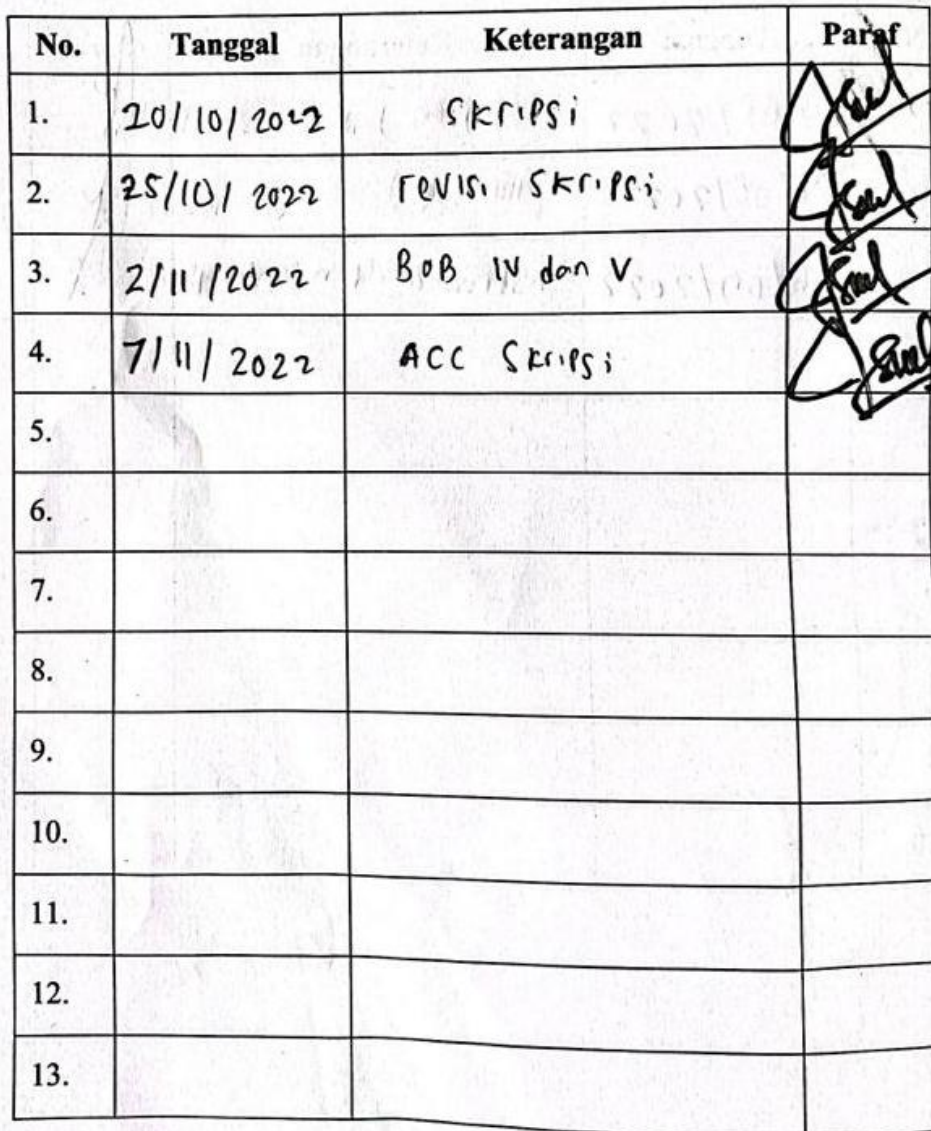 No. Tanggal Keterangan Paraf
1. 20/10/2022 Skripsi
2. 25/10/2022 revisi Skripsi
3. 2/11/2022 BOB IV dan V
4. 7/11/2022 ACC Skripsi
5.
6.
7.
8.
9.
10.
11.
12.
13.